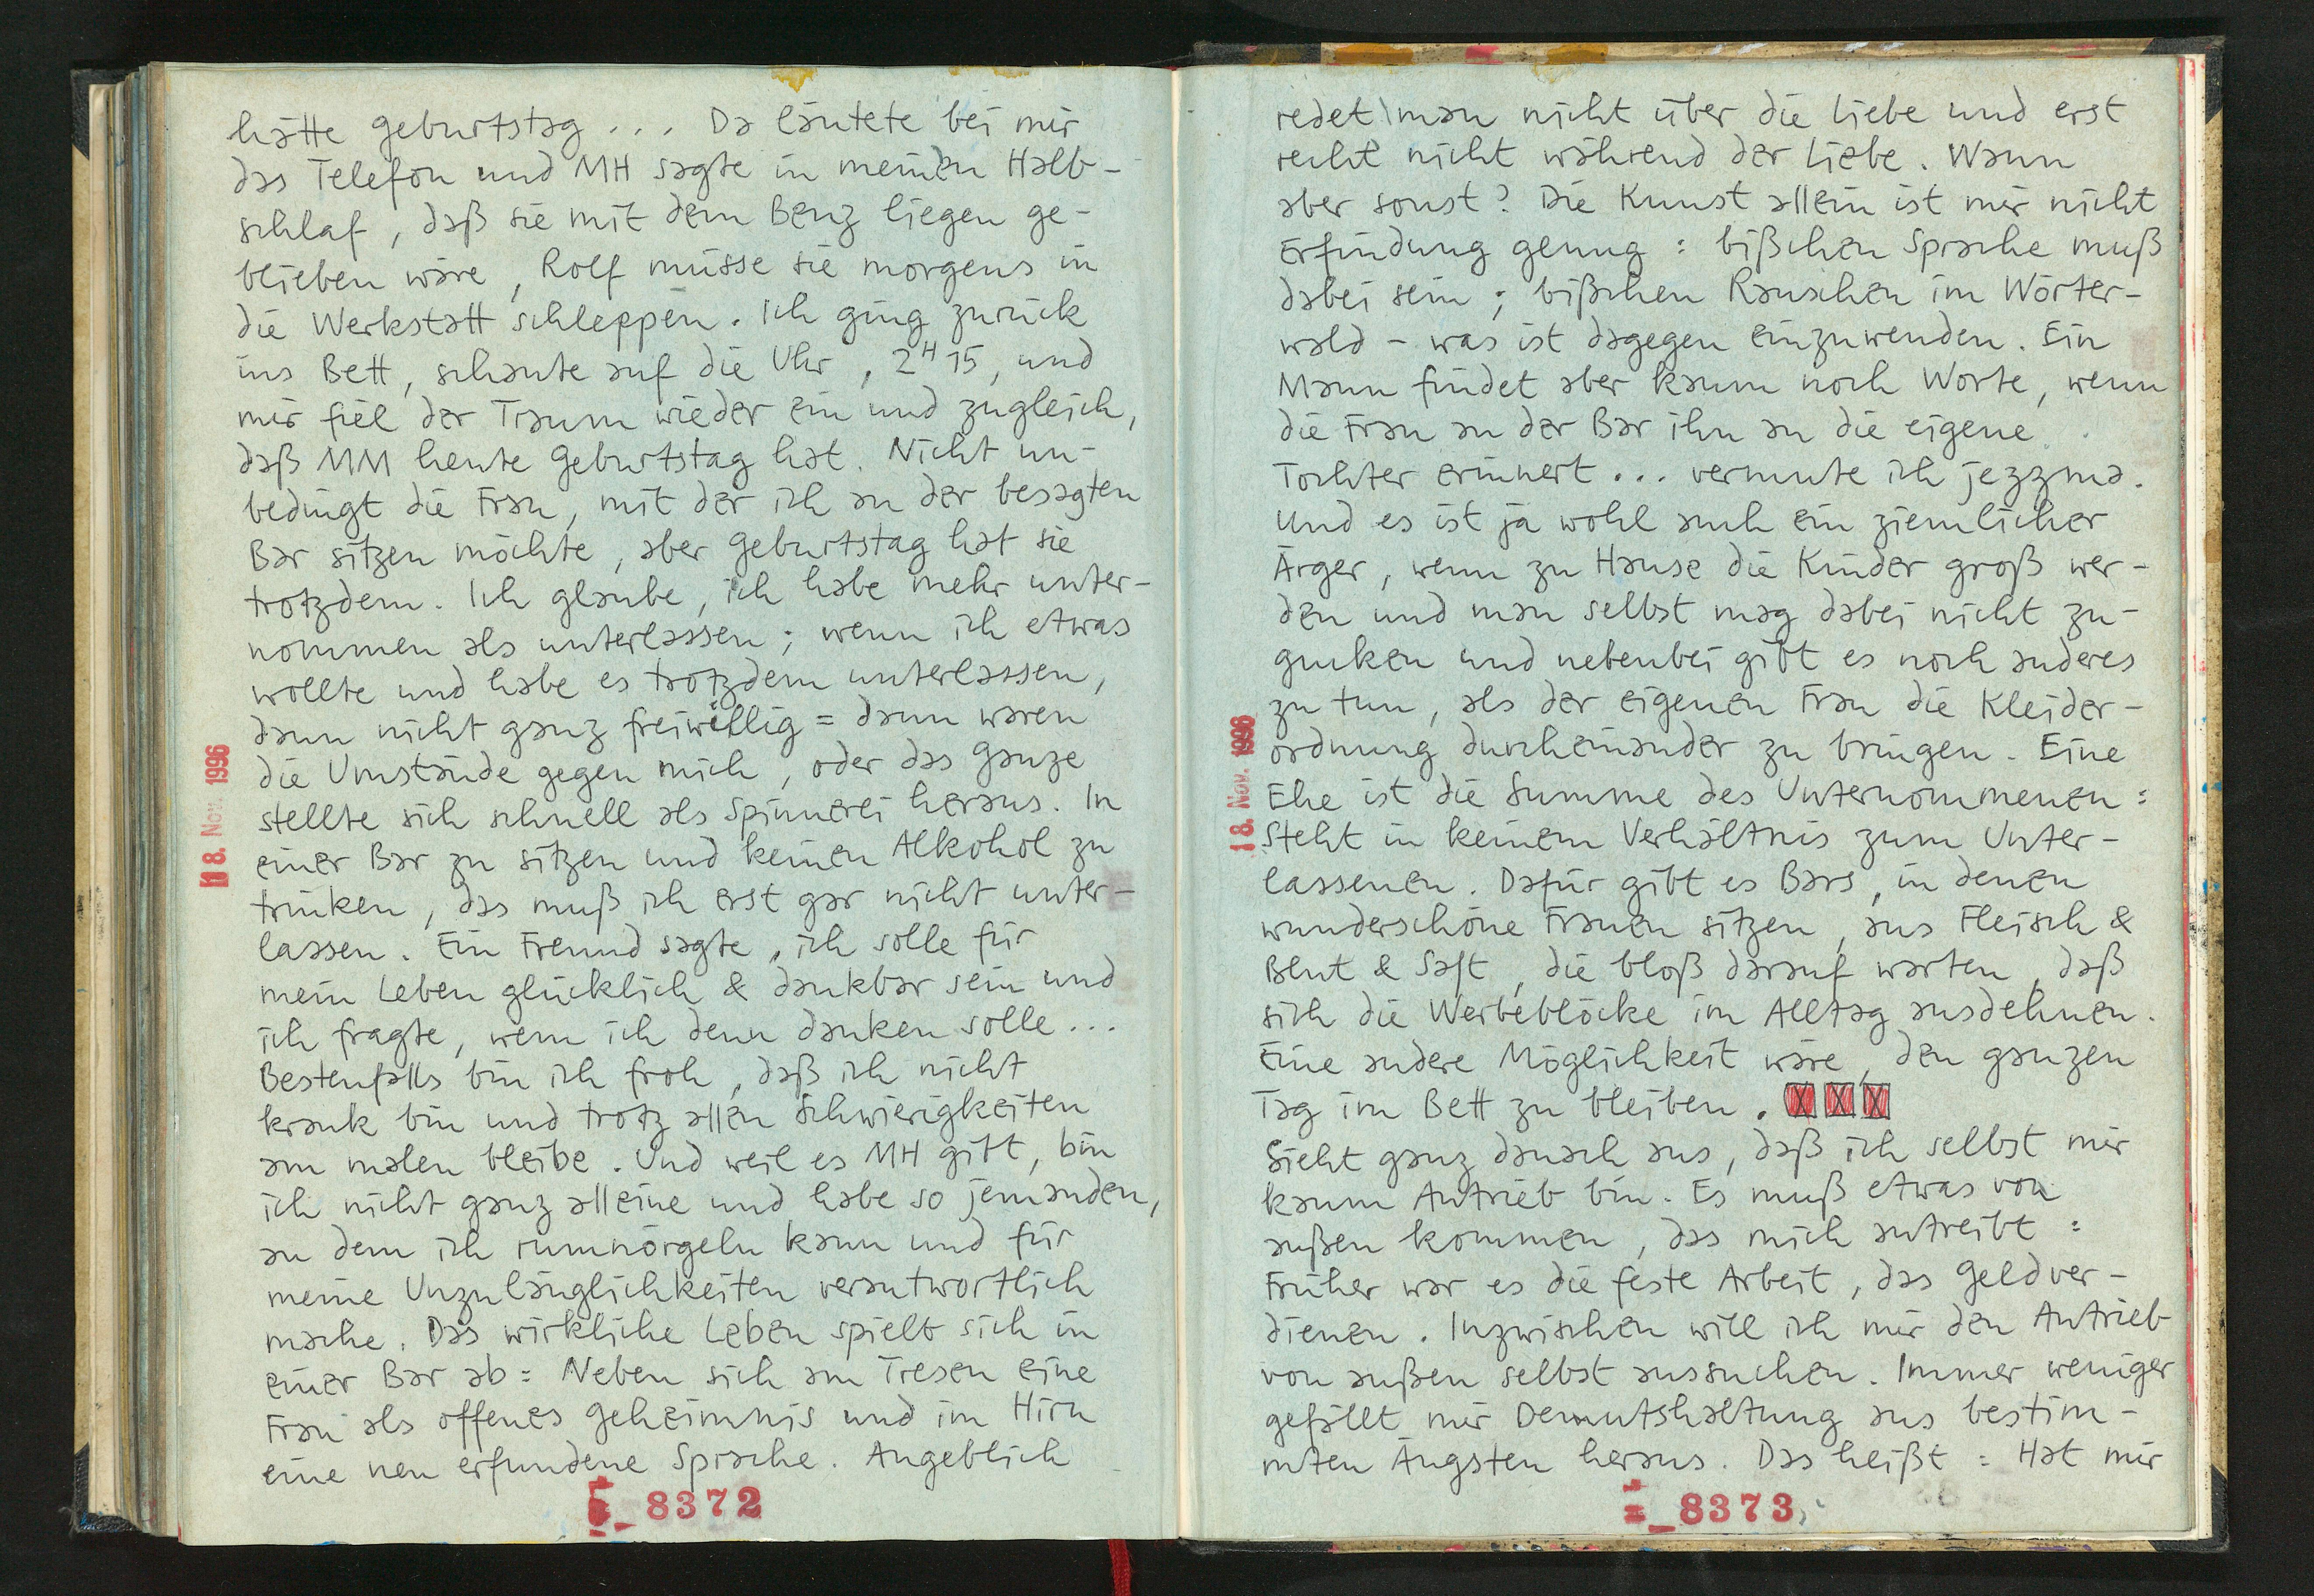 hätte Geburtstag ... Da läutete bei mir
das Telefon und MH sagte in meinen Halb-
schlaf, daß sie mit dem Benz liegen ge-
blieben wäre, Rolf müsse sie morgens in
die Werkstatt schleppen. Ich ging zurück
ins Bett, schaute auf die Uhr, 2H15, und
mir fiel der Traum wieder ein und zugleich,
daß MM heute Geburtstag hat. Nicht un-
bedingt die Frau, mit der ich an der besagten
Bar sitzen möchte, aber Geburtstag hat sie
trotzdem. Ich glaube, ich habe mehr unter-
nommen als unterlassen; wenn ich etwas
wollte und habe es trotzdem unterlassen,
dann nicht ganz freiwillig = dann waren
die Umstände gegen mich, oder das Ganze
stellte sich schnell als Spinnerei heraus. In
einer Bar zu sitzen und keinen Alkohol zu
trinken, das muß ich erst gar nicht unter-
lassen. Ein Freund sagte, ich solle für
mein Leben glücklich & dankbar sein und
ich fragte, wem ich denn danken solle ...
Bestenfalls bin ich froh, daß ich nicht
krank bin und trotz allen Schwierigkeiten
am malen bleibe. Und weil es MH gibt, bin
ich nicht ganz alleine und habe so jemanden,
an dem ich rumnörgeln kann und für
meine Unzulänglichkeiten verantwortlich
mache. Das wirkliche Leben spielt sich in
einer Bar ab: Neben sich am Tresen eine
Frau als offenes Geheimnis und im Hirn
eine neu erfundene Sprache. Angeblich
18. Nov. 1996
8372
redet man nicht über die Liebe und erst
recht nicht während der Liebe. Wann
aber sonst? Die Kunst allein ist mir nicht
Erfindung genug: bißchen Sprache muß
dabei sein; bißchen Rauschen im Wörter-
wald - was ist dagegen einzuwenden. Ein
Mann findet aber kaum noch Worte, wenn
die Frau an der Bar ihn an die eigene
Tochter erinnert ... vermute ich jezzma.
Und es ist ja wohl auch ein ziemlicher
Ärger, wenn zu Hause die Kinder groß wer-
den und man selbst mag dabei nicht zu-
gucken und nebenbei gibt es noch anderes
zu tun, als der eigenen Frau die Kleider-
ordnung durcheinander zu bringen. Eine
Ehe ist die Summe des Unternommenen:
Steht in keinem Verhältnis zum Unter-
lassenen. Dafür gibt es Bars, in denen
wunderschöne Frauen sitzen, aus Fleisch &
Blut & Saft, die bloß darauf warten, daß
sich die Werbeblöcke im Alltag ausdehnen.
Eine andere Möglichkeit wäre, den ganzen
Tag im Bett zu bleiben. X X X
Sieht ganz danach aus, daß ich selbst mir
kaum Antrieb bin. Es muß etwas von
außen kommen, das mich antreibt:
Früher war es die feste Arbeit, das Geldver-
dienen. Inzwischen will ich mir den Antrieb
von außen selbst aussuchen. Immer weniger
gefällt mir Demutshaltung aus bestim-
mten Ängsten heraus. Das heißt: Hat mir
18. Nov. 1996
8373